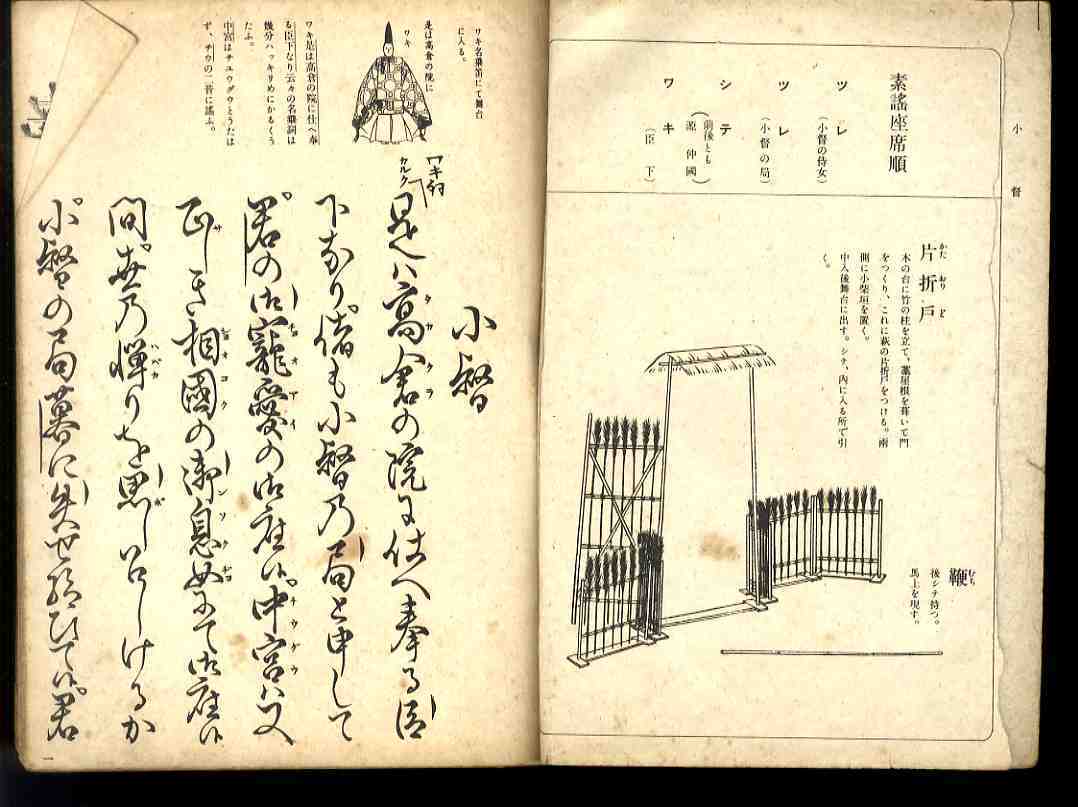 小督
素謡座席順
ツレ
(小督の侍女)
ツレ
(小督の局)
シテ
(前後とも
源仲國)
ワキ
(臣下)
片折戸
かたおりど
木の台に竹の柱を立て、藁屋根を葺いて門
をつくり、これに萩の片折戸をつける。両
側に小柴垣を置く。
中入後舞台に出す。シテ、内に入る所で引
く。
鞭
むち
後シテ持つ。
馬上を現す。
ワキ名乗笛にて舞台
に入る。
是は高倉の院に
ワキ
ワキ是は高倉の院に仕へ奉
る臣下なり云々の名乗詞は
幾分ハッキリめにかるくう
たふ。
中宮はチユウグウとうたは
ず、チウの二音に謡ふ。
小督
ワキ詞
カルク
是ハ高倉の院に仕へ奉る臣
タカクラ
下なり偖も小督乃局と申して
君の御寵愛の御座候中宮ハ又
チヨオアイ
チウグウ
正しき相國の御息女にて御座候
シヨオコク
間世乃憚りを思しめしけるか
ハバカ
小督の局暮に失せ給ひて候君